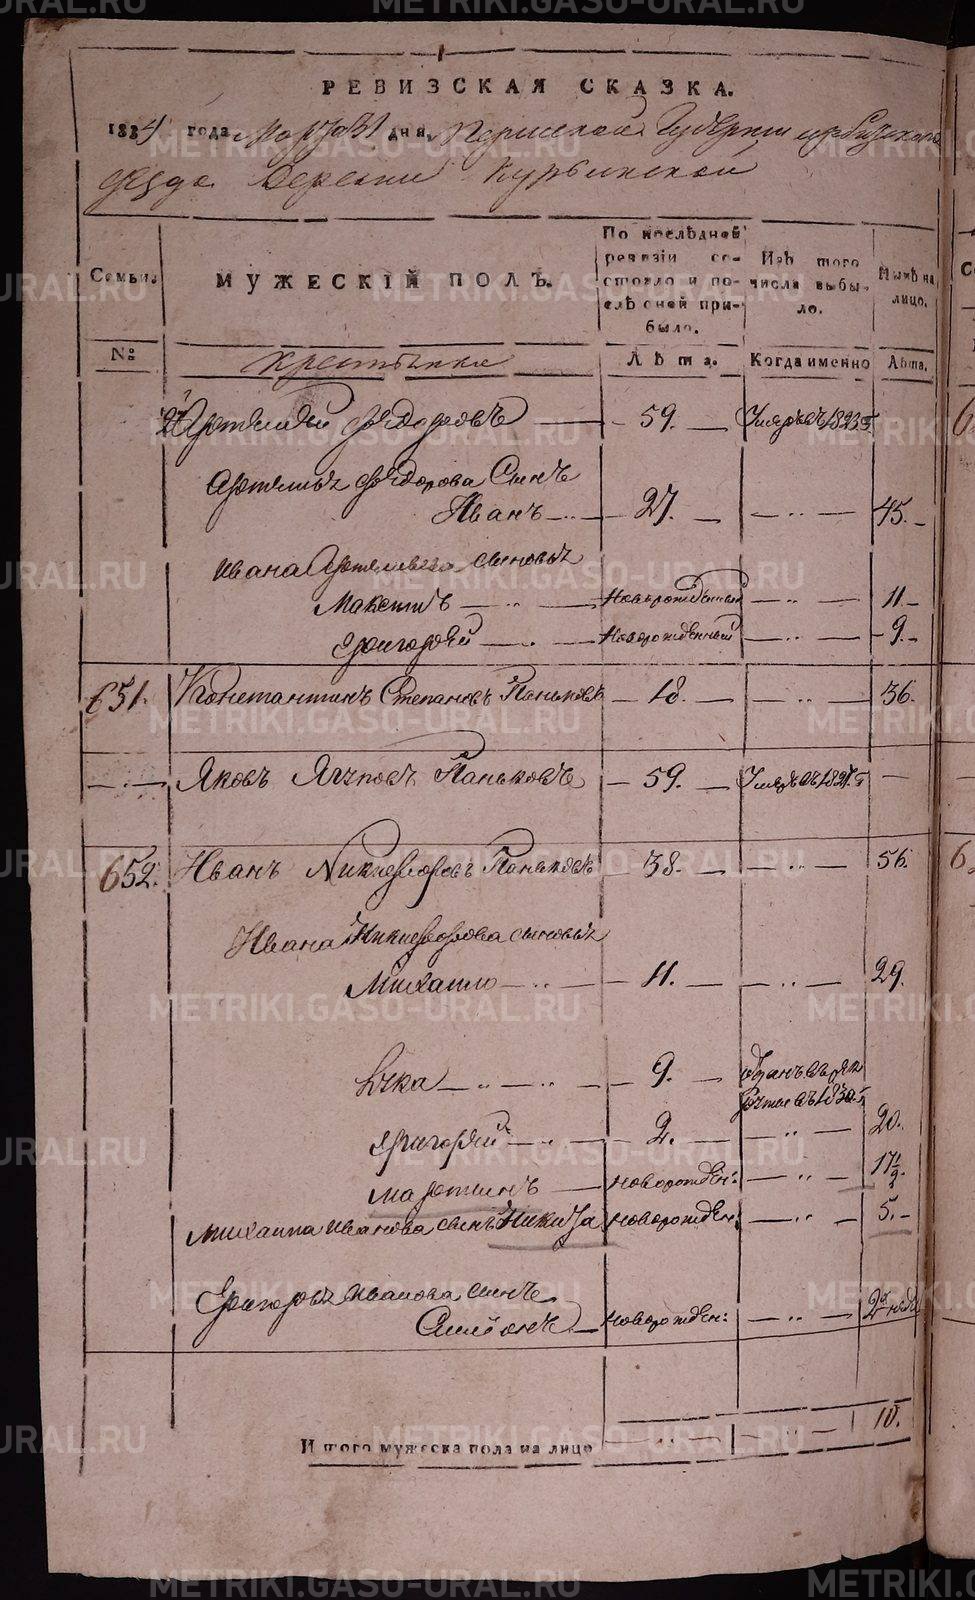 РЕВИЗСКАЯ СКАЗКА.
1834 года Марта 31 дня, Пермской Губернии Ирбитского
уезда Деревни Курьинской
Семьи. МУЖЕСКІЙ ПОЛЪ. По послѣдней ревизіи состояло и послѣ оной прибыло. Изъ того числа выбыло. Нынѣ на лицо.
№ крестьяне Лѣта. Когда именно Лѣта.
Артемий Фёдоровъ 59. Умеръ въ 1823 г
Артемья Фёдорова Сынъ
Иванъ 27. 45.
Ивана Артемьева сыновья
Максимъ Новорожденный 11
Григорей Новорожденный 9.
651. Константинъ Степановъ Паньковъ 18. 36.
Яковъ Паньковъ 59. Умеръ въ 1827 г
652. Иванъ Никифоровъ Паньковъ 38. 56.
Ивана Никифорова сыновья
Михаило 11. 29.
Лука 9. Отданъ въ
въ 1830 г
Григорей 2. 20.
Мартинъ новорожден: 17 1/2.
Михаила Иванова сынъ Никита новорожден: 5.
Григорья Иванова сынъ
Симеонъ новорожден:
Итого мужеска пола на лицо 10.
METRIKI.GASO-URAL.RU